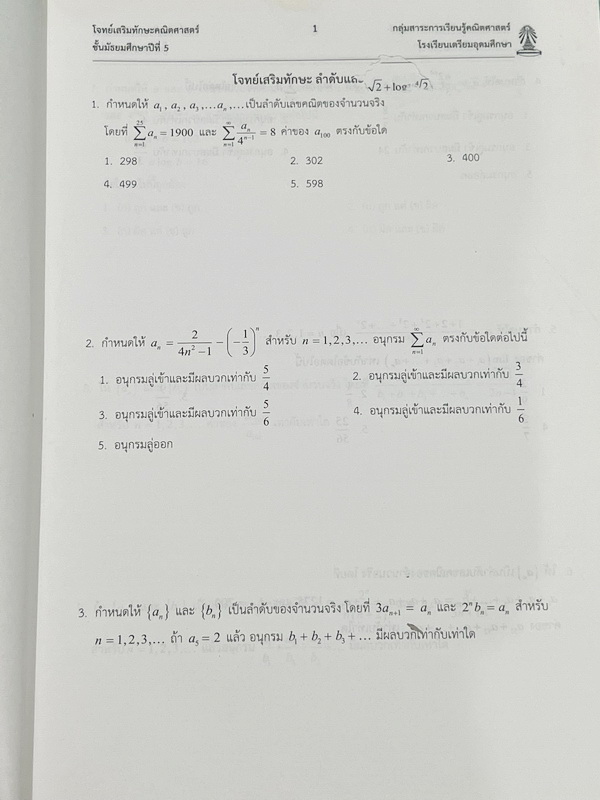 โจทย์เสริมทักษะคณิตศาสตร์ 1 กลุ่มสาระการเรียนรู้คณิตศาสตร์
ชั้นมัธยมศึกษาปีที่ 5 โรงเรียนเตรียมอุดมศึกษา
โจทย์เสริมทักษะ ลำดับและ √2 + log ∜2
1. กำหนดให้ a₁, a₂, a₃,...aₙ,... เป็นลำดับเลขคณิตของจำนวนจริง
โดยที่ ∑_{n=1}^{25} aₙ = 1900 และ ∑_{n=1}^{∞} aₙ/4ⁿ⁻¹ = 8 ค่าของ a₁₀₀ ตรงกับข้อใด
1. 298 2. 302 3. 400
4. 499 5. 598
2. กำหนดให้ aₙ = 2/(4n²−1) − (−1/3)ⁿ สำหรับ n = 1,2,3,... อนุกรม ∑_{n=1}^{∞} aₙ ตรงกับข้อใดต่อไปนี้
1. อนุกรมลู่เข้าและมีผลบวกเท่ากับ 5/4 2. อนุกรมลู่เข้าและมีผลบวกเท่ากับ 3/4
3. อนุกรมลู่เข้าและมีผลบวกเท่ากับ 5/6 4. อนุกรมลู่เข้าและมีผลบวกเท่ากับ 1/6
5. อนุกรมลู่ออก
3. กำหนดให้ {aₙ} และ {bₙ} เป็นลำดับของจำนวนจริง โดยที่ 3aₙ₊₁ = aₙ และ 2ⁿbₙ = aₙ สำหรับ
n = 1,2,3,... ถ้า a₅ = 2 แล้ว อนุกรม b₁ + b₂ + b₃ + ... มีผลบวกเท่ากับเท่าใด